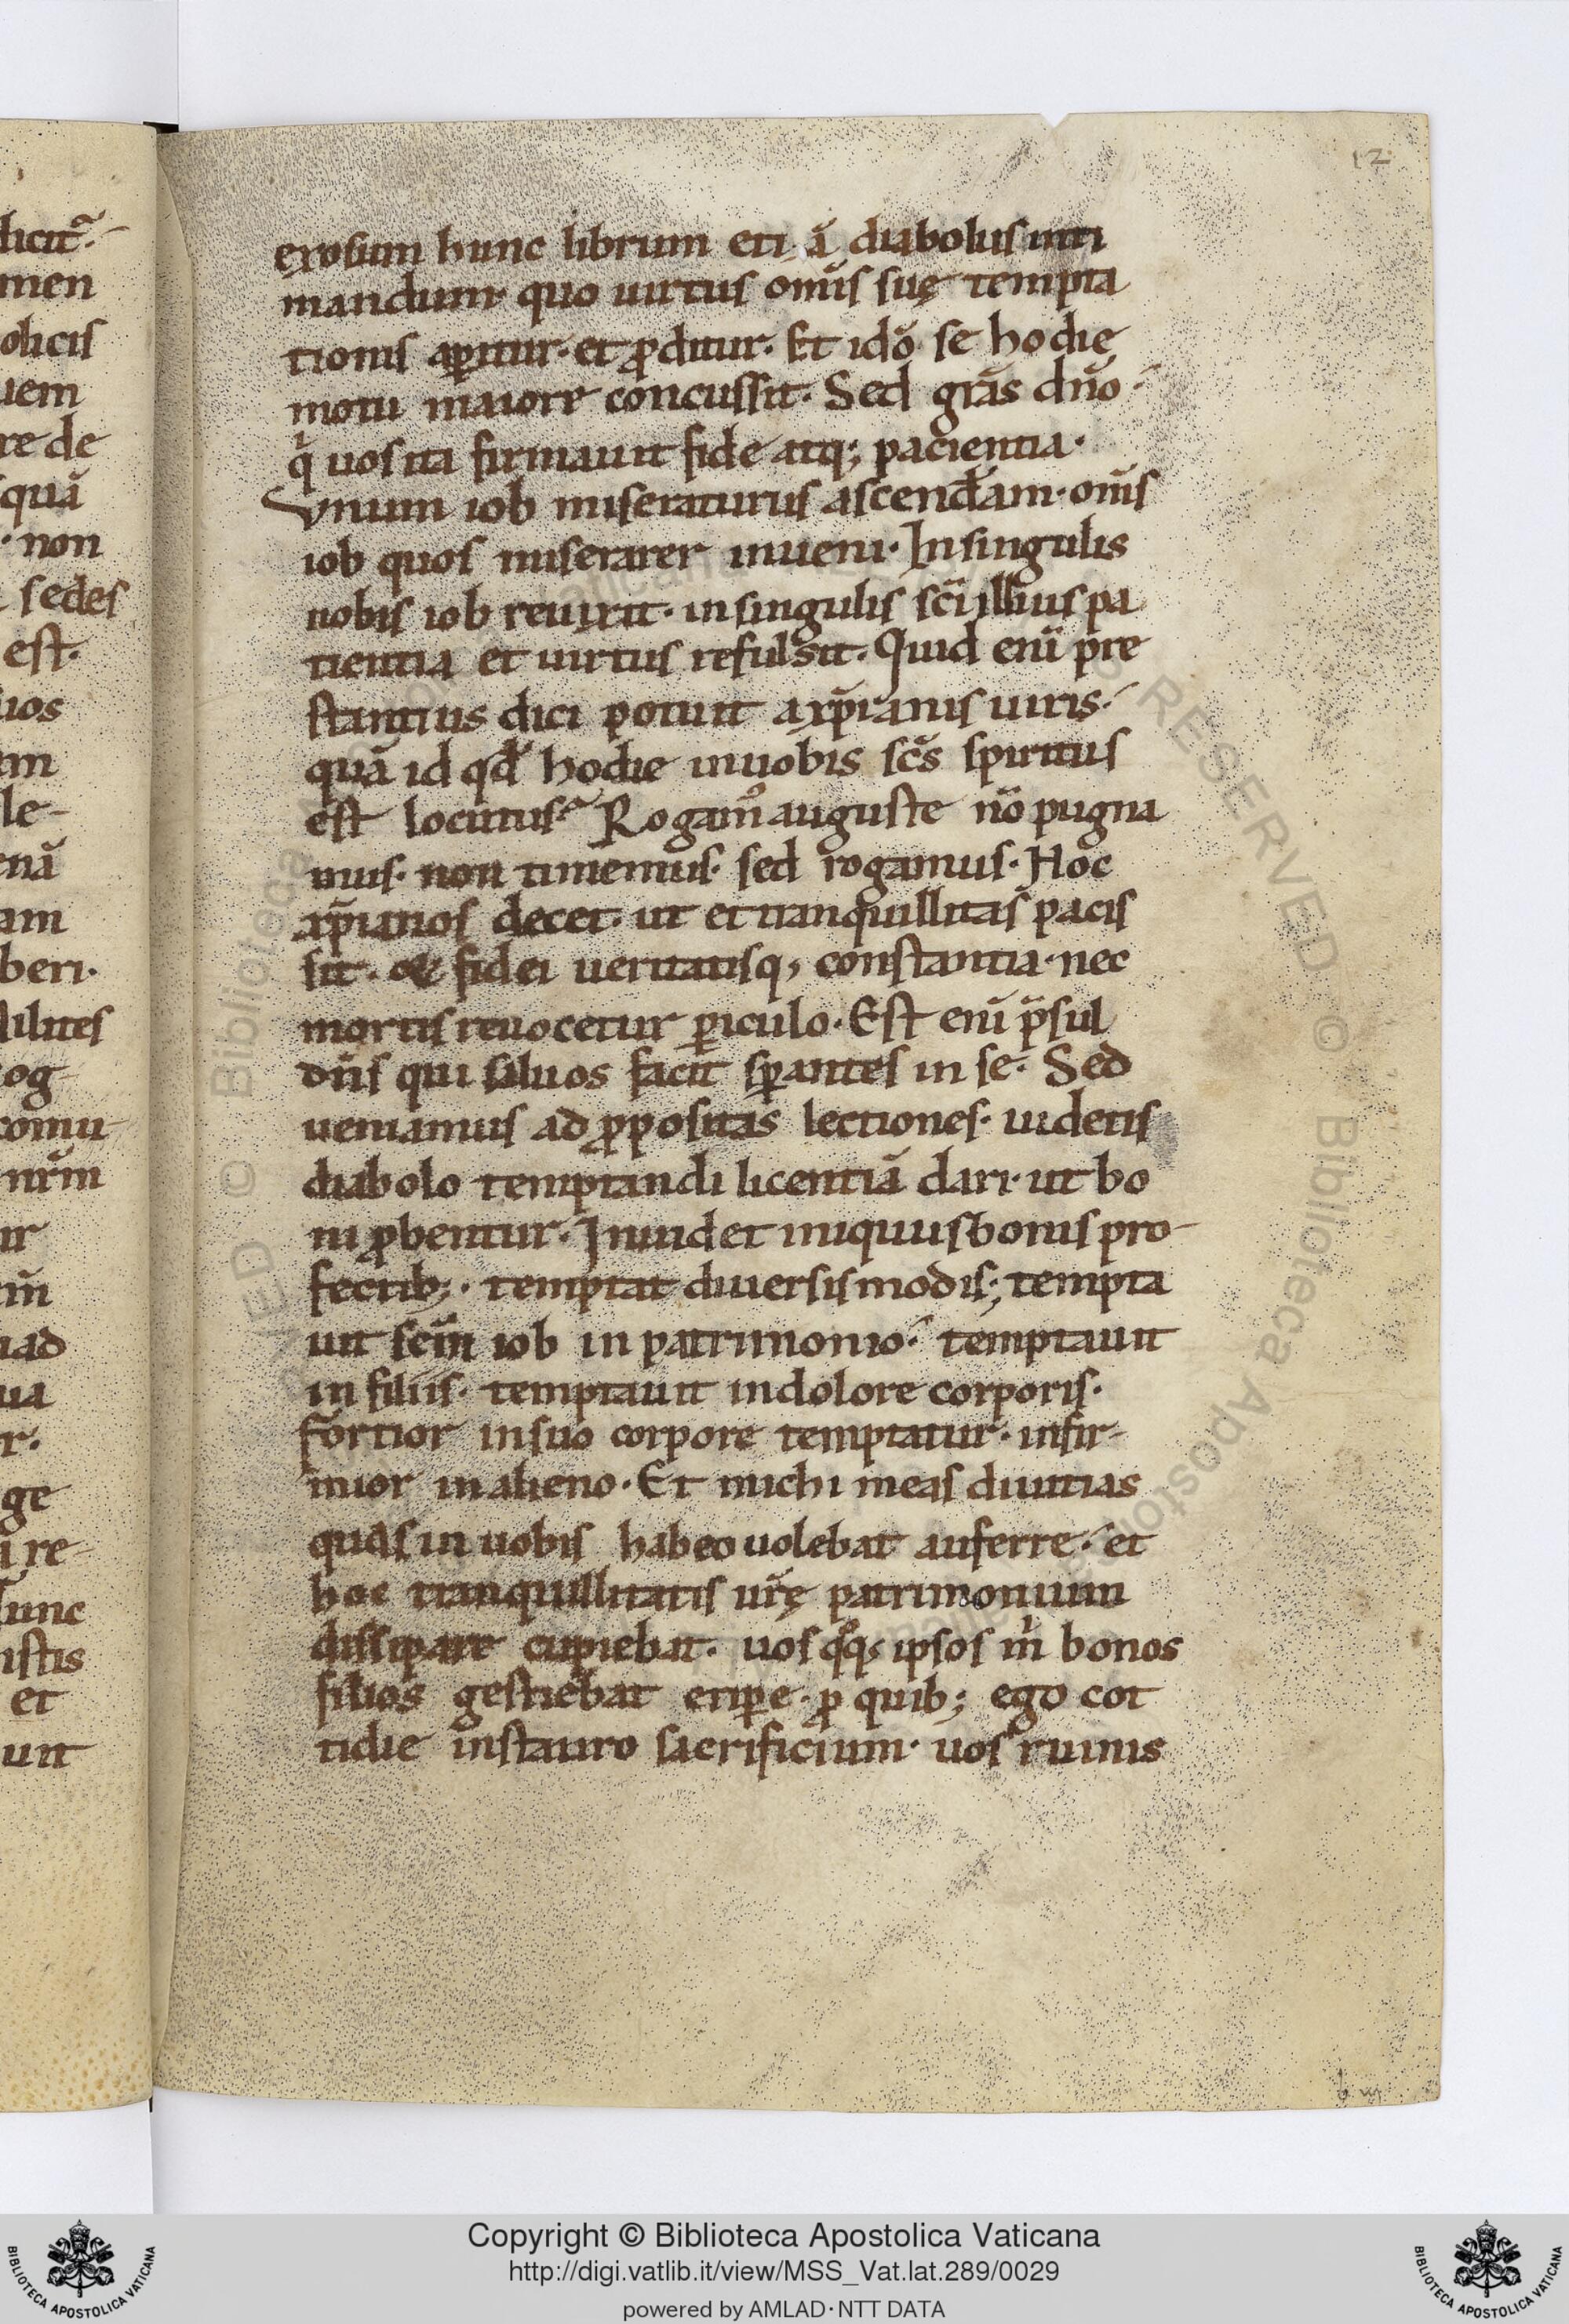 12
exosum hunc librum eti ā diabolus inti
mandum· quo uirtus om̄is suę tempta
tionis ap̲itur· et ꝓditur· Et idō se hodie
motu maiore concussit· Sed gr̄as dn̄o·
qͥ uos ita firmauit fide atq; pacientia·
Vnum iob miseraturus ascenderam· om̄s
iob quos miserarer inueni· In singulis
uobis iob reuixit· in singulis sc̄i illius pa
tientia et uirtus refulsit· Quid eni̅ pre
stantius dici potuit a xp̄ianis uiris·
quā id qd̄ hodie in uobis sc̄s spiritus
est locutus· Rogam᷒ auguste nō pugna
mus· non timemus· sed rogamus· Hoc
xp̄ianos decet· ut et tranquillitas pacis
sit· & fidei ueritatisq, constantia· nec
mortis reuocetur ꝑiculo· Est eni̅ p̄sul
dn̄s qui saluos facit sꝑantes in se· Sed
ueniamus ad ꝓpositas lectiones· uidetis
diabolo temptandi licentiā dari· ut bo
ni ꝓbentur· Inuidet iniquus bonis pro-
fectib;· temptat diuersis modis; tempta
uit sc̄m iob in patrimonio· temptauit
in filiis· temptauit in dolore corporis·
fortior in suo corpore temptatur· infir-
mior in alieno· Et michi meas diuitias
quas in uobis habeo uolebat auferre· et
hoc tranquillitatis ur̄ę patrimonium
dissipare cupiebat· uos qͦq; ipsos mͥ bonos
filios gestiebat eriꝑe· ꝓ quib; ego cot
tidie instauro sacrificium· uos ruinis
dicit᷑·
men
olicis
uem
re de
quā
· non
sedes
est·
uos
em
le-
enā
am
beri·
ilites
og-
comu-
nr̄m
ur
m̄
ad
ua
r·
ge
i re-
unc
istis
et
uit
Copyright © Biblioteca Apostolica Vaticana
http://digi.vatlib.it/view/MSS_Vat.lat.289/0029
powered by AMLAD·NTT DATA
BIBLIOTECA APOSTOLICA VATICANA
BIBLIOTECA APOSTOLICA VATICANA